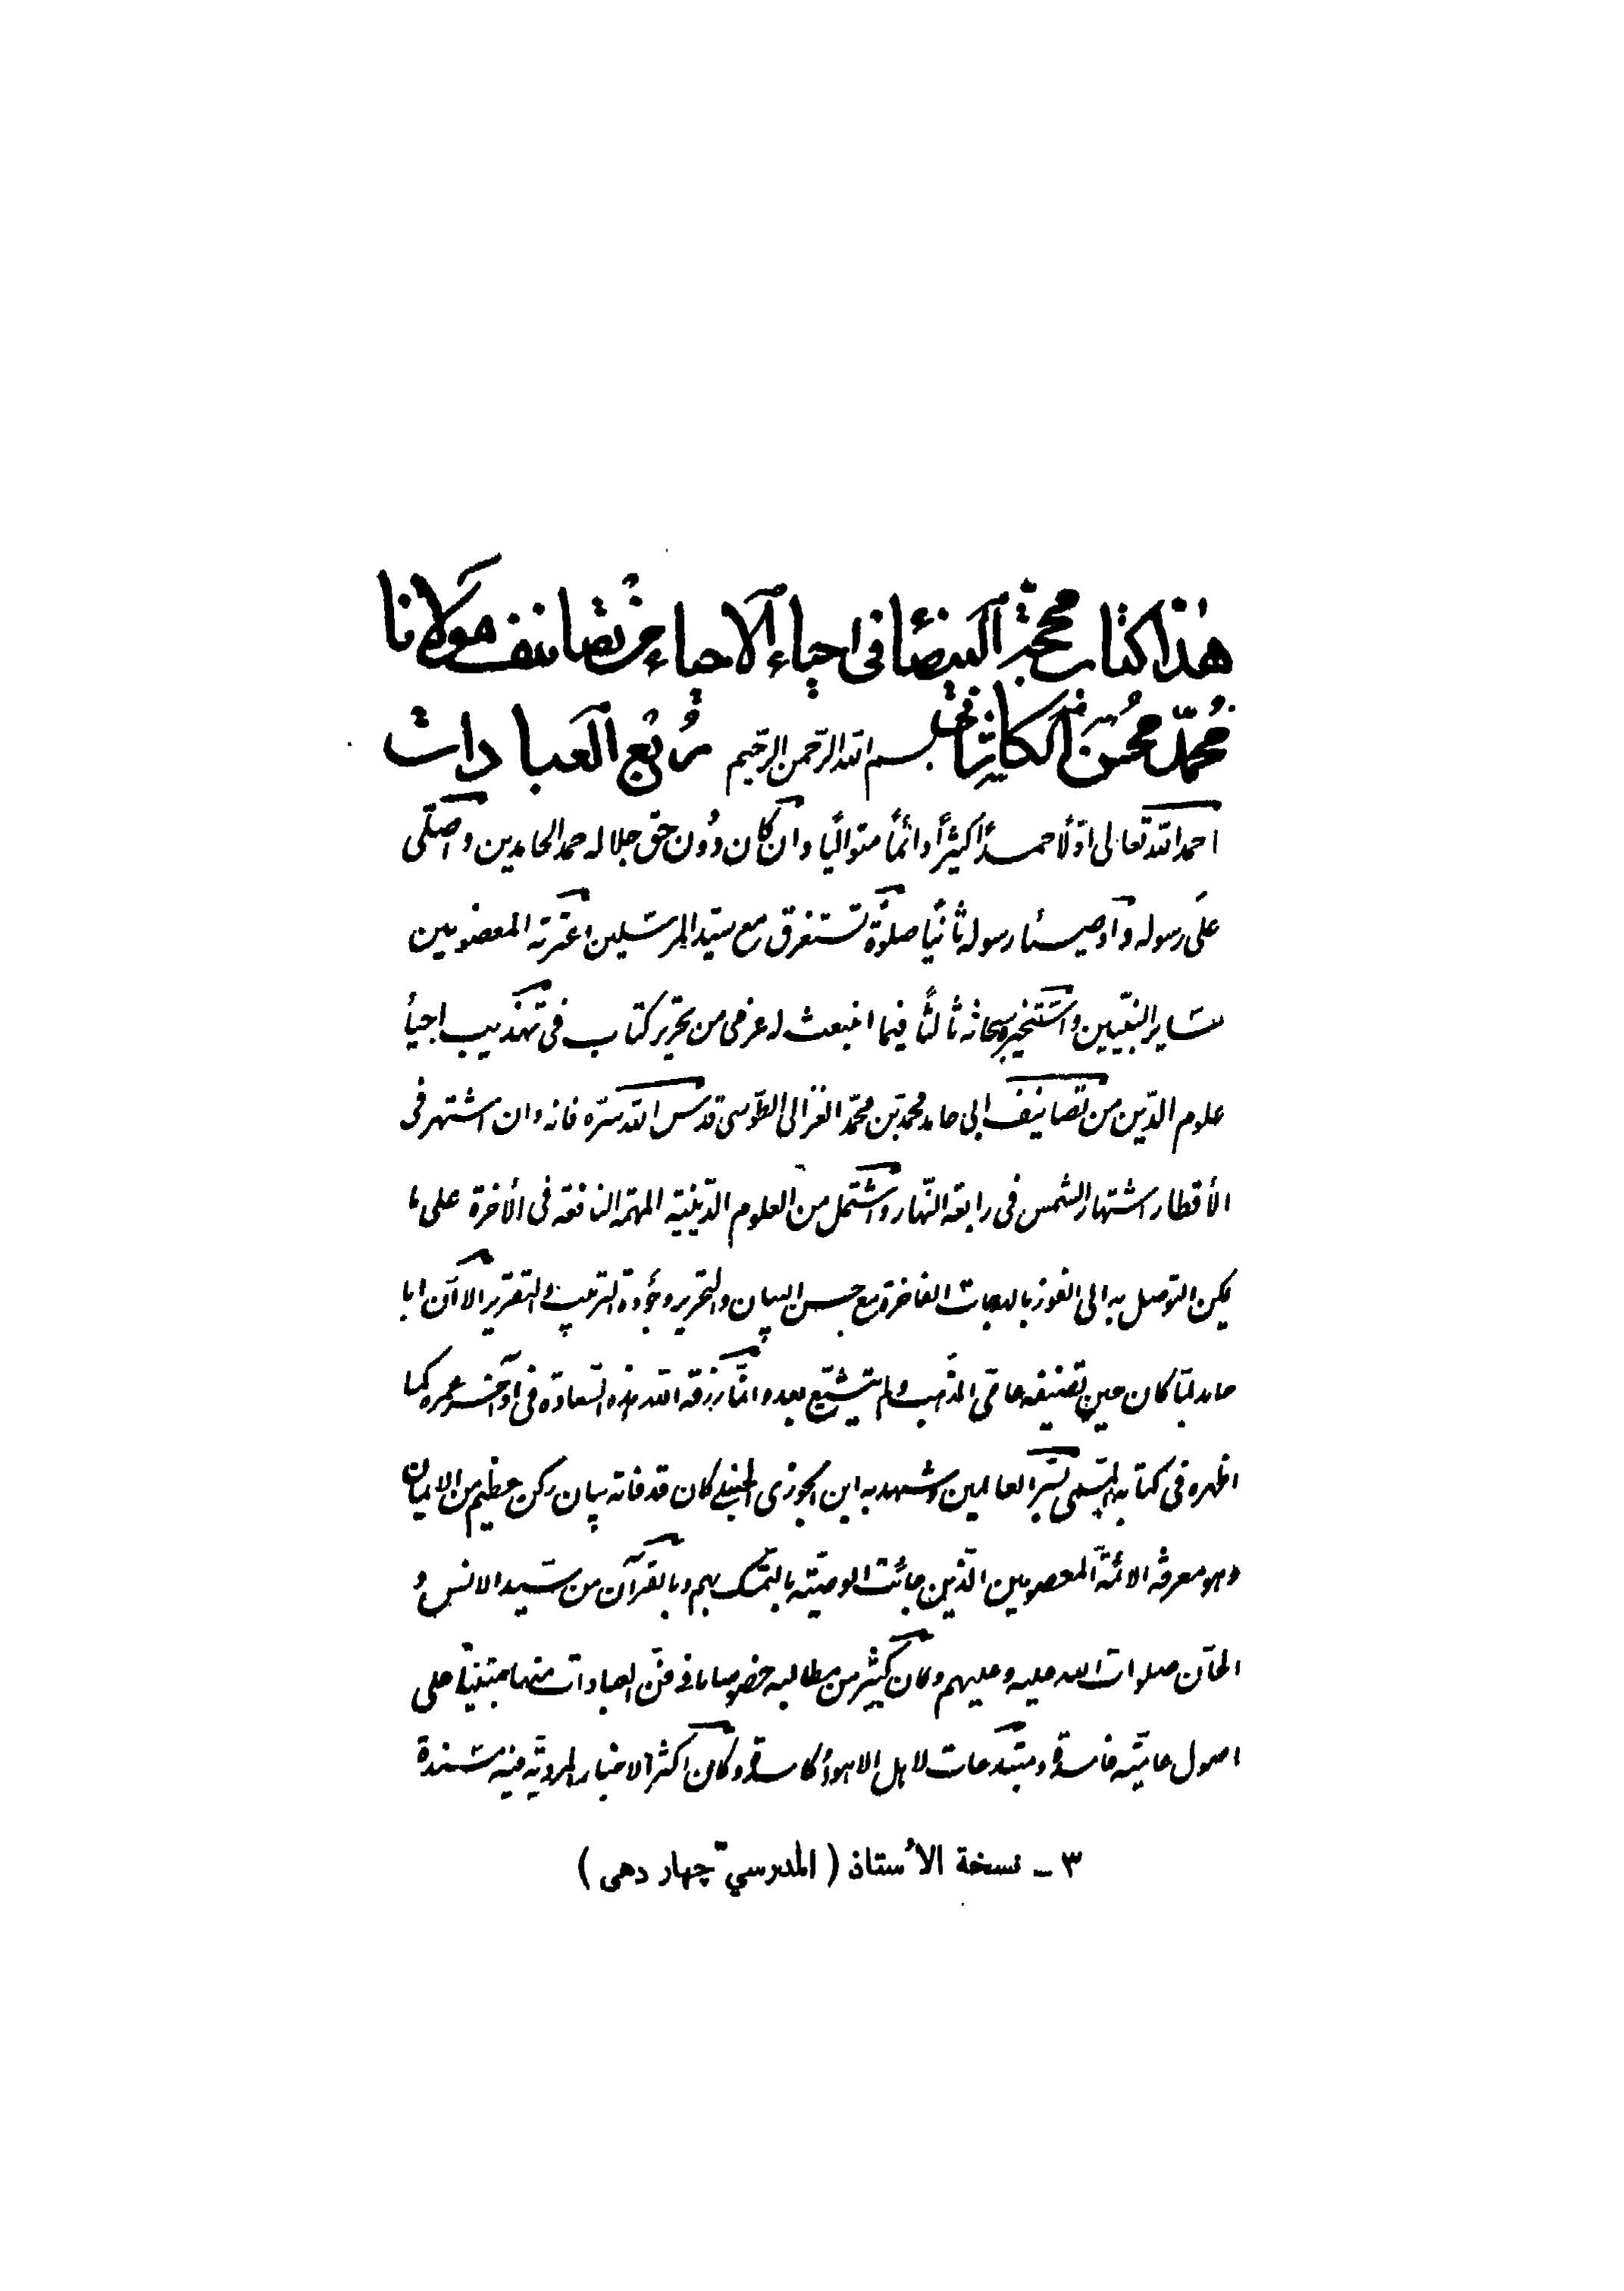 هذا كتاب محجة البيضا فى احياء الاحياء من تصانيف مولانا
محمد محسن الكاشانى بسم الله الرحمن الرحيم ربع العبادات
احمد الله تعالى اوّلاً حمداً كثيراً دائماً متواليًا وان كان دون حق جلاله حمد الحامدين واصلّى
على رسوله وآوصياء رسوله ثانيًا صلوة تستغرق مع سيّد المرسلين وعترته المعصومين
سايرالنبيّين واستخيره سبحانه ثالثًا فيما انبعث له عزمى من تحرير كتاب فى تهذيب احياء
علوم الدّين من تصانيف ابى حامد محمد بن محمّد الغزالى الطّوسى قدس الله سرّه فانه وان اشتهر فى
الأقطار اشتهار الشمس فى رابعة النّهار واشتمل من العلوم الدّينيّة المهمّة النافعة فى الأخرة على ما
يمكن التوصل به الى الفوز بالدرجات الفاخرة مع حسن البيان والتحرير وجودة الترتيب والتقرير الا آن ابا
حامد لمّا كان حين تصنيفه عامّى المذهب ولم يتشيّع بعد وانّما رزقه الله هذه السّعادة فى اوآخر عمره كما
اظهره فى كتابه المسّمى بسّر العالمين وشهد به ابن الجوزى الحنبلى كان قد فاته بيان ركن عظيم من الايمان
وهو معرفة الائمّة المعصومين الّذين جائت الوصيّة بالتمّسك بهم وبالقرآن من سيّد الانس و
الجآن صلوات الله عليه وعليهم وكان كثير من مطالبه خصوصا ما فى فنّ العبادات منها مبتنيًا على
اصول عاميّة فاسدة ومبتدعات لاهل الاهواء كاسدة وكان اكثر الاخبار المرويّة فيه مسندة
٣ ـ نسخة الأستاذ ( المدرسيّ چهار دهى )